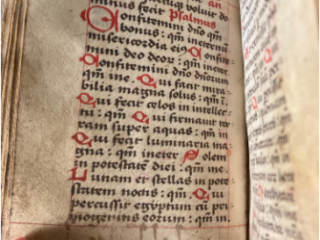 minus fecit Psalmus
Confitemini dño qm̃
bonus: qm̃ ineternũ
misericordia eiꝰ Confite-
mini deo deoꝝ: qm̃ ineter.
Confitemini dño dñorum
qm̃ ine. Qui facit mira-
bilia magna solus: qm̃ ĩ.
Qui fecit celos in intellec-
tu: qm̃ in. Qui firmauit ter-
ram super aquas: qm̃ in
Qui fecit luminaria ma-
gna: qm̃ ineter Solem
in potestatẽ diei: qm̃ ine.
Lunam et stellas in pote-
statem noctis: qm̃. Qui
percussit egyptum cũ pri
mogenitis eorum: qm̃ in.